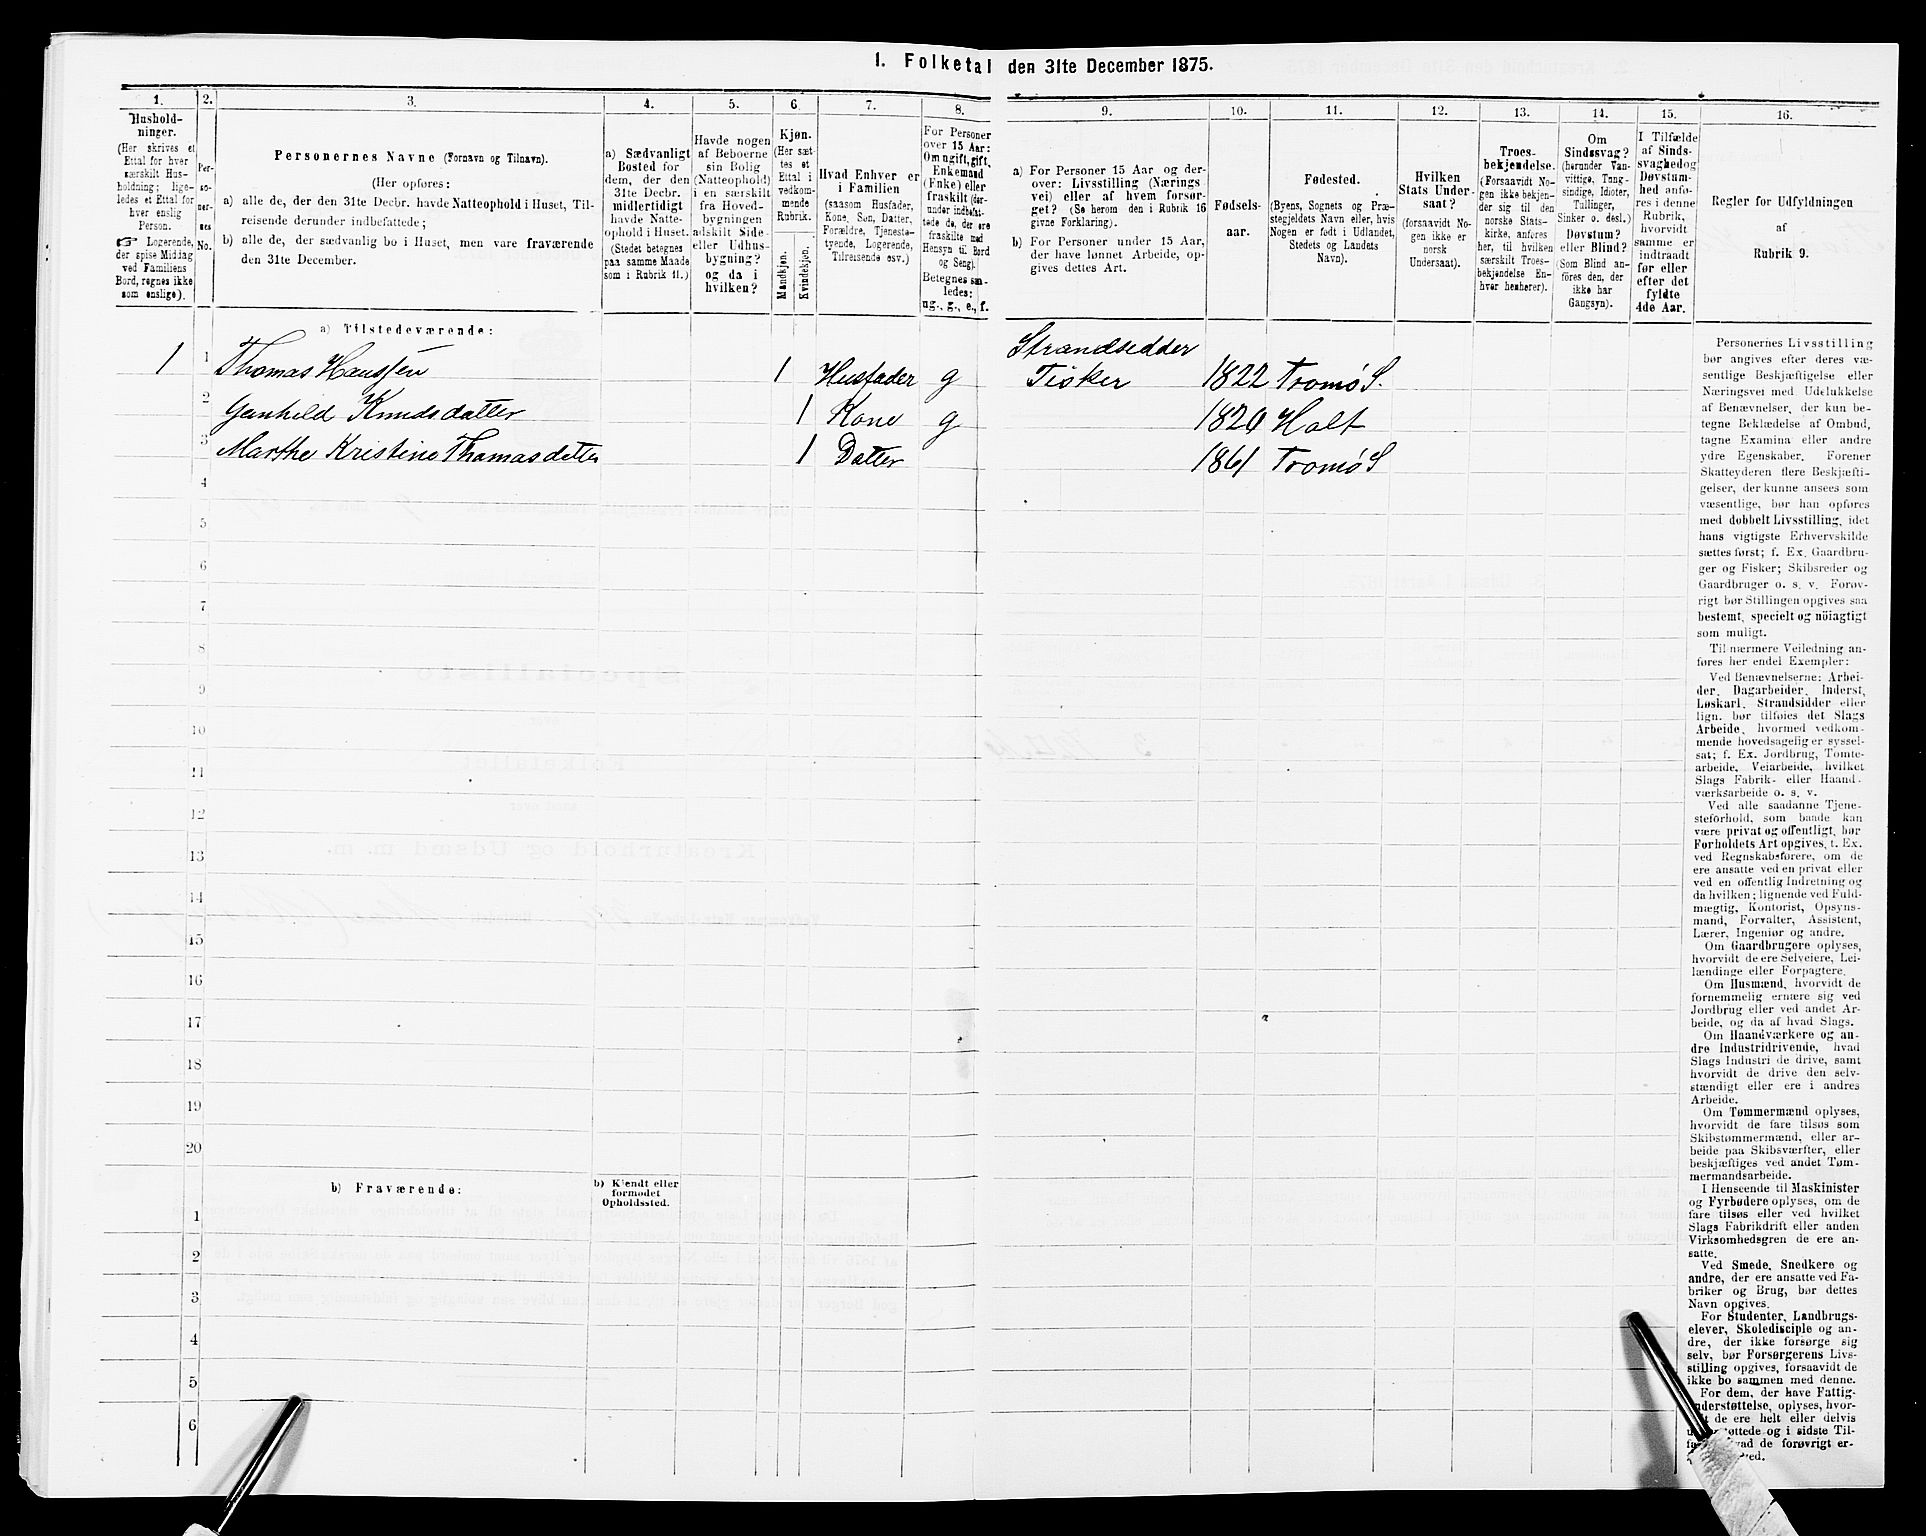 1. Folketal den 31te December 1875.
1.
2.
3.
4.
5.
6.
7.
8.
9.
10.
11.
12.
13.
14.
15.
16.
Hushold-
ninger.
(Her skrives et
Ettal for hver
særskilt Hus-
holdning; lige-
ledes et Ettal for
hver enslig
Person.
☞ Logerende,
der spise Middag
ved Familiens
Bord, regnes ikke
som enslige).
Per-
so-
ner-
nes
No.
Personernes Navne (Fornavn og Tilnavn).
(Her opføres:
a) alle de, der den 31te Decbr. havde Natteophold i Huset, Til-
reisende derunder indbefattede;
b) alle de, der sædvanlig bo i Huset, men vare fraværende
den 31te December.
a) Sædvanligt
Bosted for
dem, der den
31te Decbr.
midlertidigt
havde Natte-
ophold i Huset.
(Stedet betegnes
paa samme Maade
som i Rubrik 11.)
Havde nogen
af Beboerne
sin Bolig
(Natteophold)
i en særskilt
fra Hoved-
bygningen
adskilt Side-
eller Udhus-
bygning?
og da i
hvilken?
Kjøn.
(Her sæt-
tes et
Ettal i
vedkom-
mende
Rubrik.
Mandkjøn.
Kvindekjøn.
Hvad Enhver er
i Familien
(saasom Husfader,
Kone, Søn, Datter,
Forældre, Tjeneste-
tyende, Logerende,
Tilreisende osv.)
For Personer
over 15 Aar:
Om ugift, gift,
Enkemand
(Enke) eller
fraskilt (der-
under indbefat-
tede de, der ere
fraskilte med
Hensyn til Bord
og Seng).
Betegnes saa-
ledes:
ug., g., e., f.
a) For Personer 15 Aar og der-
over: Livsstilling (Nærings-
vei) eller af hvem forsør-
get? (Se herom den i Rubrik 16
givne Forklaring).
b) For Personer under 15 Aar,
der have lønnet Arbeide, op-
gives dettes Art.
Fødsels-
aar.
Fødested.
(Byens, Sognets og Præ-
stegjeldets Navn eller, hvis
Nogen er født i Udlandet,
Stedets og Landets
Navn).
Hvilken
Stats Under-
saat?
(forsaavidt No-
gen ikke er
norsk
Undersaat).
Troes-
bekjendelse.
(Forsaavidt No-
gen ikke bekjen-
der sig til den
norske Stats-
kirke, anføres
her, til hvilken
særskilt Troes-
bekjendelse En-
hver henhører).
Om
Sindssvag?
(herunder Van-
vittige, Tung-
sindige, Idioter,
Tullinger,
Sinker o. desl.)
Døvstum?
eller Blind?
(Som Blind an-
føres den, der
ikke har
Gangsyn).
I Tilfælde
af Sinds-
svaghed og
Døvstum-
hed anfø-
res i denne
Rubrik,
hvorvidt
samme er
indtraadt
før eller
efter det
fyldte
4de Aar.
Regler for Udfyldningen
af
Rubrik 9.
a) Tilstedeværende:
1 1 Thomas Hanssen 1 Husfader g Strandsidder
Fisker 1822 Tromø S.
2 Gunhild Knudsdatter 1 Kone g 1820 Holt
3 Marthe Kristine Thomasdatter 1 Datter 1861 Tromø S
4
5
6
7
8
9
10
11
12
13
14
15
16
17
18
19
20
b) Fraværende:
b) Kjendt eller
formodet
Opholdssted.
1
2
3
4
5
6
Personernes Livsstilling
bør angives efter deres væ-
sentlige Beskjæftigelse eller
Næringsvei med Udelukkelse
af Benævnelser, der kun be-
tegne Beklædelse af Ombud,
tagne Examina eller andre
ydre Egenskaber. Forener
Skatteyderen flere Beskjæfti-
gelser, der kunne ansees som
væsentlige, bør han opføres
med dobbelt Livsstilling, idet
hans vigtigste Erhvervskilde
sættes først; f. Ex. Gaardbru-
ger og Fisker; Skibsreder og
Gaardbruger o. s. v. Forøv-
rigt bør Stillingen opgives saa
bestemt, specielt og nöiagtigt
som muligt.
Til nærmere Veiledning an-
føres her endel Exempler:
Ved Benævnelserne: Arbei-
der, Dagarbeider, Inderst,
Løskarl, Strandsidder eller
lign. bør tilføies det Slags
Arbeide, hvormed vedkom-
mende hovedsagelig er syssel-
sat; f. Ex. Jordbrug, Tomte-
arbeide, Veiarbeide, hvilket
Slags Fabrik- eller Haand-
værksarbeide o. s. v.
Ved alle saadanne Tjene-
steforhold, som baade kan
være privat og offentligt, bør
Forholdets Art opgives, t. Ex.
ved Regnskabsførere, om de
ere ansatte ved en privat eller
ved en offentlig Indretning og
da hvilken; lignende ved Fuld-
mægtig, Kontorist, Opsyns-
mand, Forvalter, Assistent,
Lærer, Ingeniør og andre.
Om Gaardbrugere oplyses,
hvorvidt de ere Selveiere, Lei-
lændinge eller Forpagtere.
Om Husmænd, hvorvidt de
fornemmelig ernære sig ved
Jordbrug eller ved andet Ar-
beide, og da af hvad Slags.
Om Haandværkere og an-
dre Industridrivende, hvad
Slags Industri de drive, samt
hvorvidt de drive den selv-
stændigt eller ere i andres
Arbeide.
Om Tømmermænd oplyses,
hvorvidt de fare tilsøs som
Skibstømmermænd, eller ar-
beide paa Skibsværfter, eller
beskjæftiges ved andet Tøm-
mermandsarbeide.
I Henseende til Maskinister
og Fyrbødere oplyses, om de
fare tilsøs eller ved hvilket
Slags Fabrikdrift eller anden
Virksomhedsgren de ere an-
satte.
Ved Smede, Snedkere og
andre, der ere ansatte ved Fa-
briker og Brug, bør dettes
Navn opgives.
For Studenter, Landbrugs-
elever, Skoledisciple og an-
dre, der ikke forsørge sig
selv, bør Forsørgerens Livs-
stilling opgives, forsaavidt de
ikke bo sammen med denne.
For dem, der have Fattig-
understøttelse, oplyses, hvor-
de ere helt eller delvis
og i sidste Til-
de forøvrigt er-